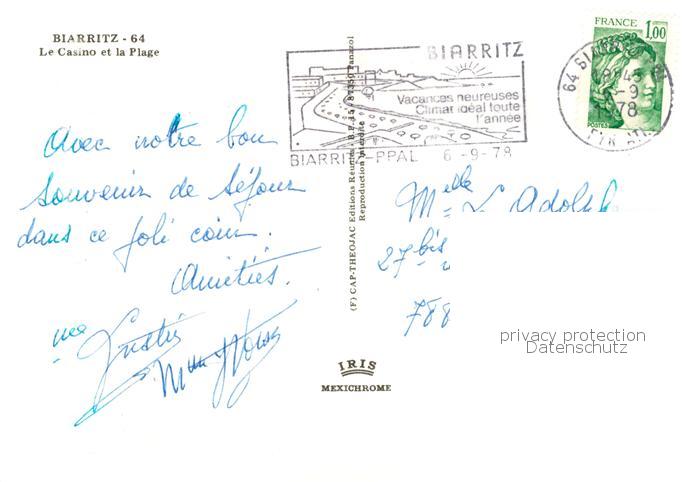 BIARRITZ - 64
Le Casino et la Plage
Avec notre bon
souvenir de séjour
dans ce joli coin.
Amitiés.
(F) CAP-THEOJAC Editions Réunies
Reproduction interdite
Panazol
BIARRITZ
Vacances heureuses
Climat idéal toute
l'année
BIARRITZ-PPAL 6-9-78
FRANCE
1,00
POSTES
64 BIARRITZ
6-9
78
Melle L Adolph
27 bis
788
IRIS
MEXICHROME
privacy protection
Datenschutz